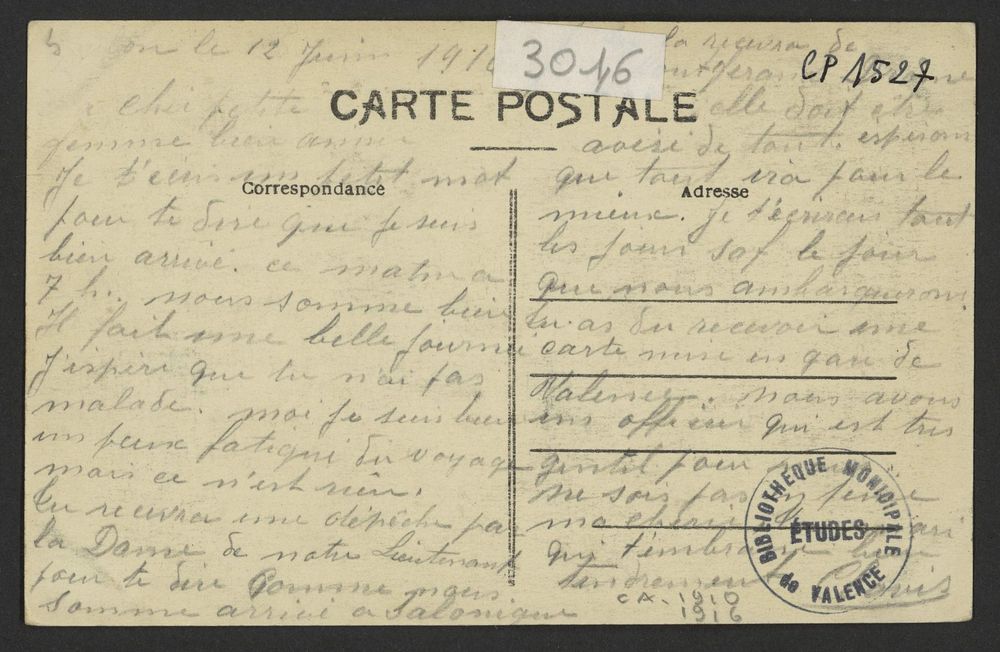 le 12 Juin 1916
chér petite
femme bien aimée
Je t'écris un petit mot
pour te dire que je suis
bien arrivé. ce matin a
7 h. nous somme bien
Il fait une belle journée
J'espère que tu n'ai pas
malade. moi je suis bien
un peux fatigué du voyage
mais ce n'est rien.
tu recevra une dépêche par
la Dame de notre Lieutenant
pour te dire Comme nous
somme arrivé a Salonique
la recevra de
elle doit etre
avisé de tout. esperons
que tout ira pour le
mieux. Je t'écrirais tout
les jours sof le jour
que nous ambarquerons
tu as du recevoir une
carte mise en gare de
Valence. nous avons
un officier qui est très
gentil pour
ne sois pas en peine
ma chérie
qui t'embrasse bien
tendrement
3016
CP 1527
CARTE POSTALE
Correspondance
Adresse
BIBLIOTHÈQUE MUNICIPALE
ÉTUDES
de VALENCE
CA. 1910
1916